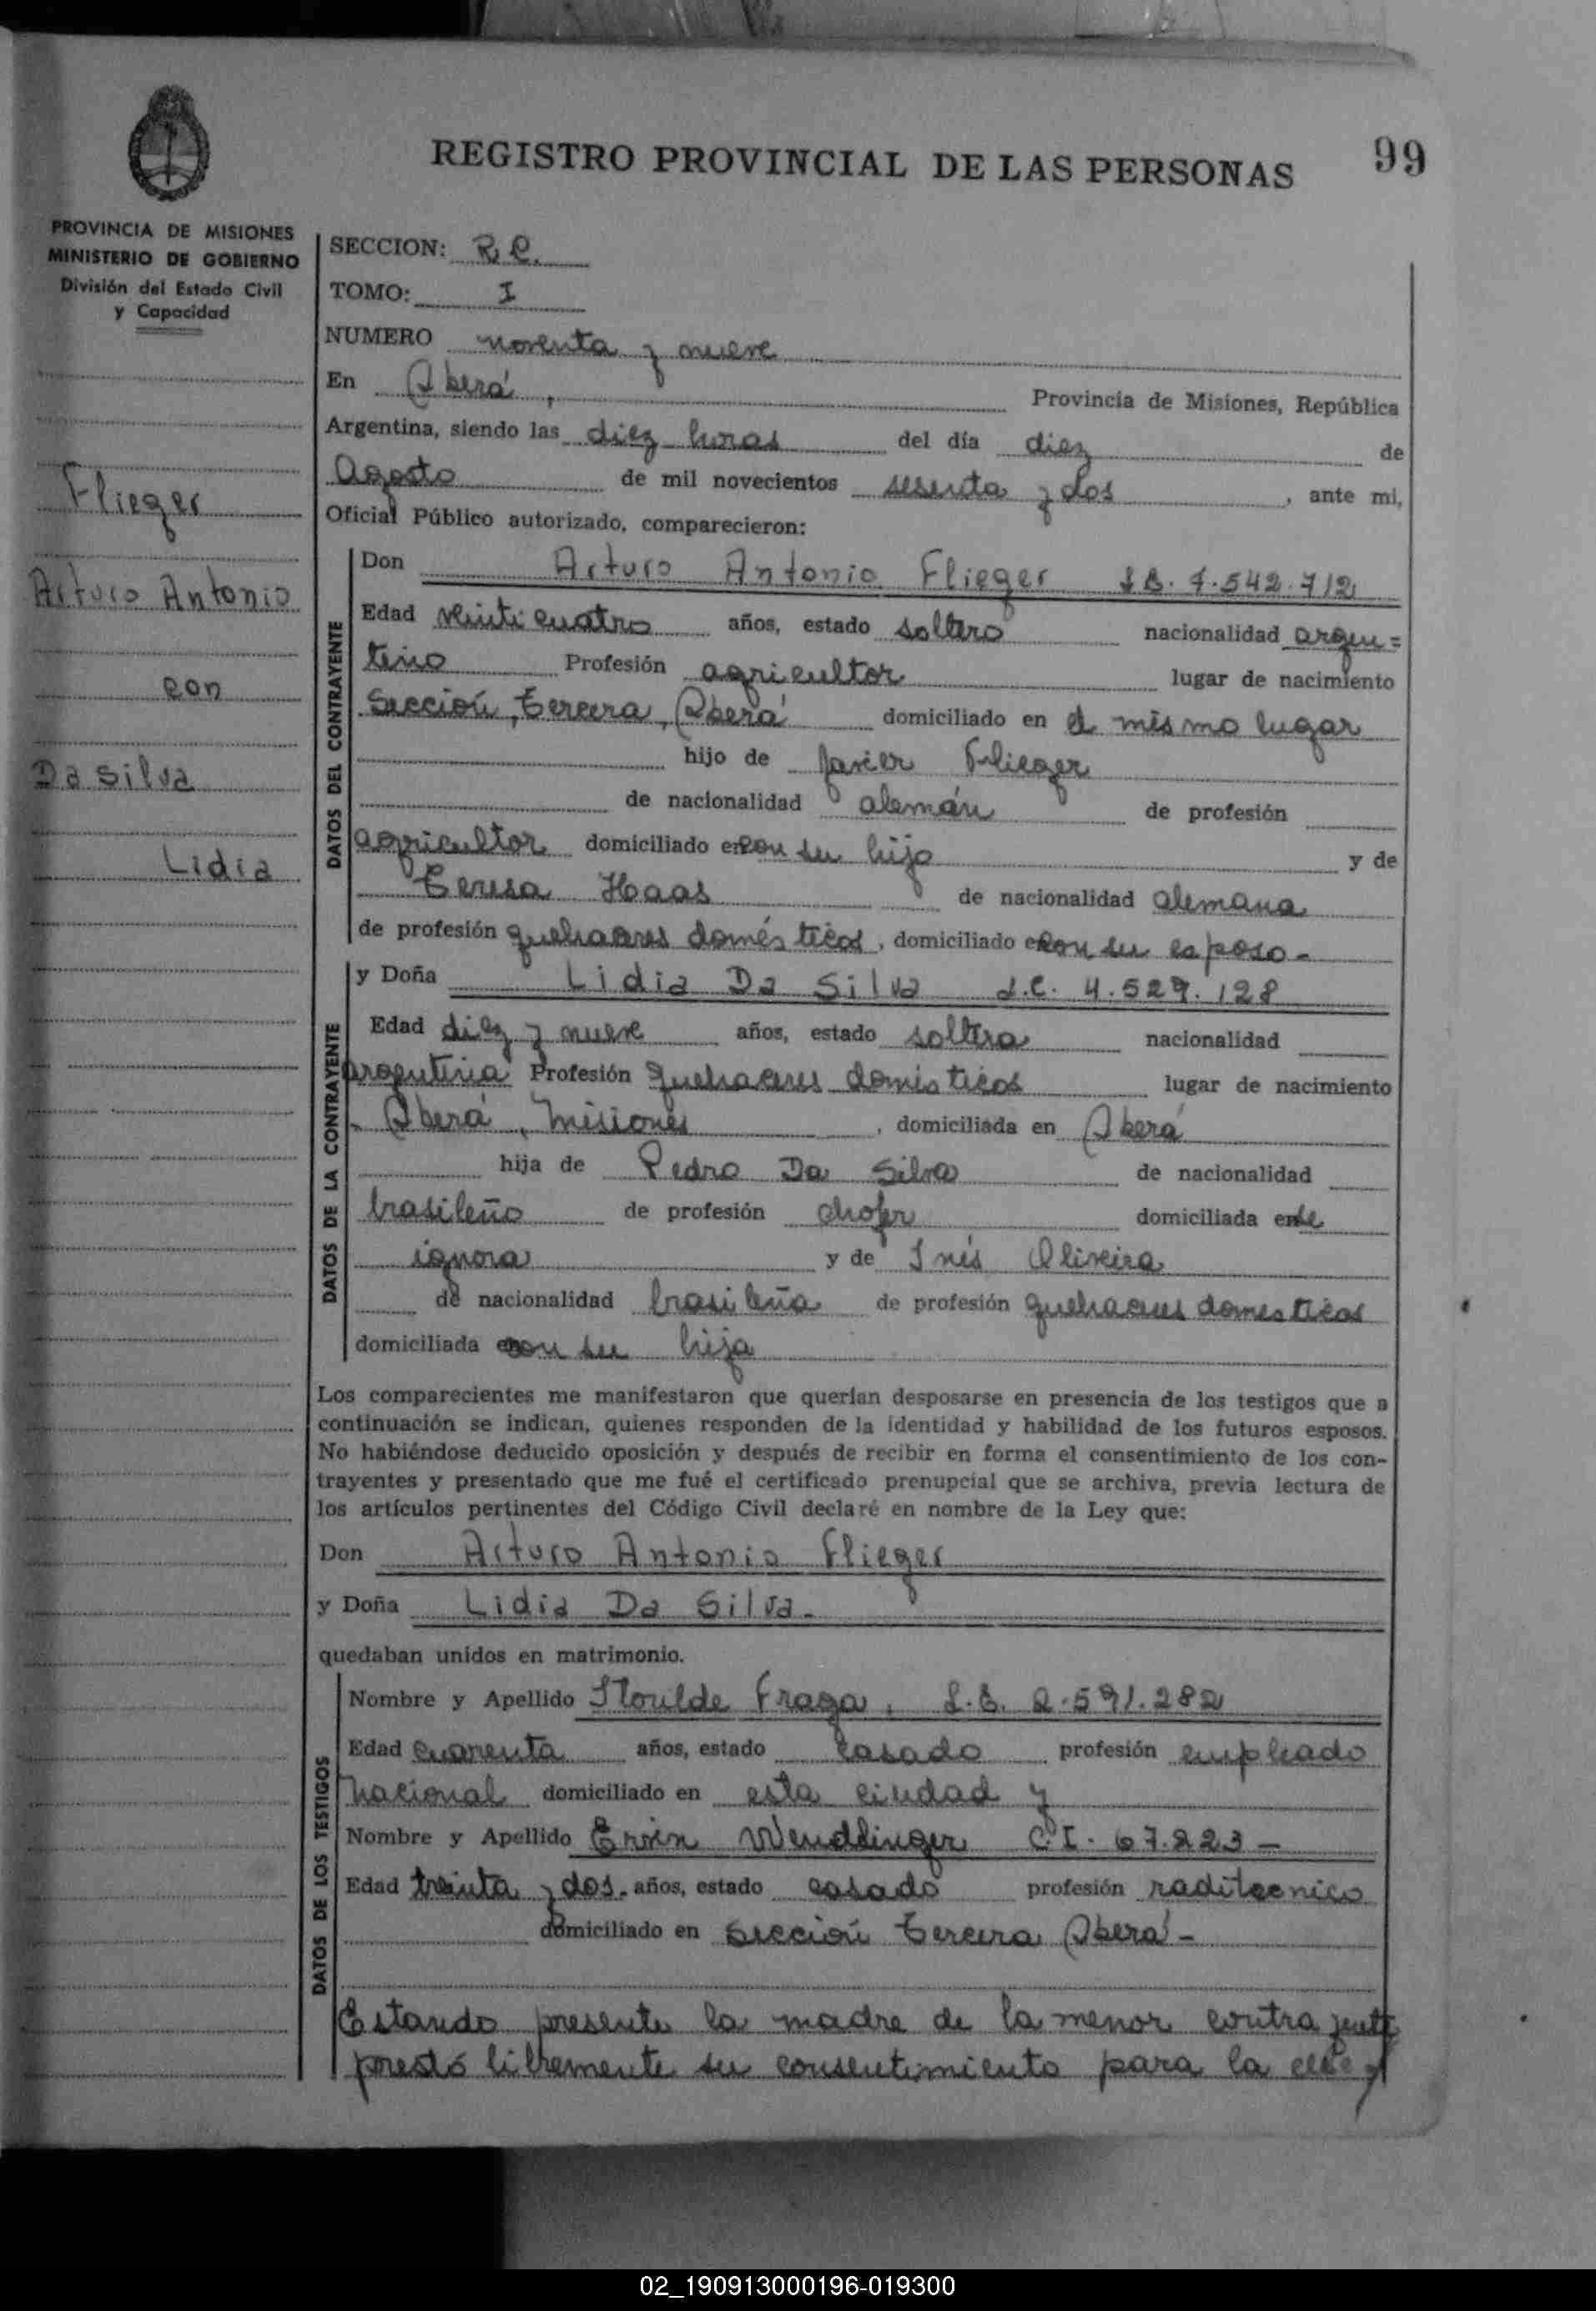 REGISTRO PROVINCIAL DE LAS PERSONAS 99
PROVINCIA DE MISIONES
MINISTERIO DE GOBIERNO
División del Estado Civil
y Capacidad
Flieger
Arturo Antonio
con
Da Silva
Lidia
SECCION: R.C.
TOMO: I
NUMERO noventa y nueve
En Oberá, Provincia de Misiones, República
Argentina, siendo las diez horas del día diez de
Agosto de mil novecientos sesenta y dos, ante mi,
Oficial Público autorizado, comparecieron:
DATOS DEL CONTRAYENTE
Don Arturo Antonio Flieger L.E. 7.542.712
Edad veinticuatro años, estado soltero nacionalidad argen=
tino Profesión agricultor lugar de nacimiento
Sección, Tercera, Oberá domiciliado en el mismo lugar
hijo de Javier Flieger
de nacionalidad alemán de profesión
agricultor domiciliado en con su hijo y de
Teresa Haas de nacionalidad alemana
de profesión quehaceres domésticos, domiciliado en con su esposo-
DATOS DE LA CONTRAYENTE
y Doña Lidia Da Silva L.C. 4.529.128
Edad diez y nueve años, estado soltera nacionalidad
argentina Profesión quehaceres domésticos lugar de nacimiento
Oberá, Misiones, domiciliada en Oberá
hija de Pedro Da Silva de nacionalidad
brasileño de profesión chofer domiciliada en se
ignora y de Inés Oliveira
de nacionalidad brasileña de profesión quehaceres domesticos
domiciliada en con su hija
Los comparecientes me manifestaron que querían desposarse en presencia de los testigos que a
continuación se indican, quienes responden de la identidad y habilidad de los futuros esposos.
No habiéndose deducido oposición y después de recibir en forma el consentimiento de los con-
trayentes y presentado que me fué el certificado prenupcial que se archiva, previa lectura de
los artículos pertinentes del Código Civil declaré en nombre de la Ley que:
Don Arturo Antonio Flieger
y Doña Lidia Da Silva-
quedaban unidos en matrimonio.
DATOS DE LOS TESTIGOS
Nombre y Apellido Fraga, L.E. 2.591.282
Edad cuarenta años, estado casado profesión empleado
nacional domiciliado en esta ciudad y
Nombre y Apellido Erwin Wendlinger C.I. 67.223-
Edad treinta y dos. años, estado casado profesión raditecnico
domiciliado en Sección Tercera Oberá-
Estando presente la madre de la menor contrayente
prestó libremente su consentimiento para la
02_190913000196-019300